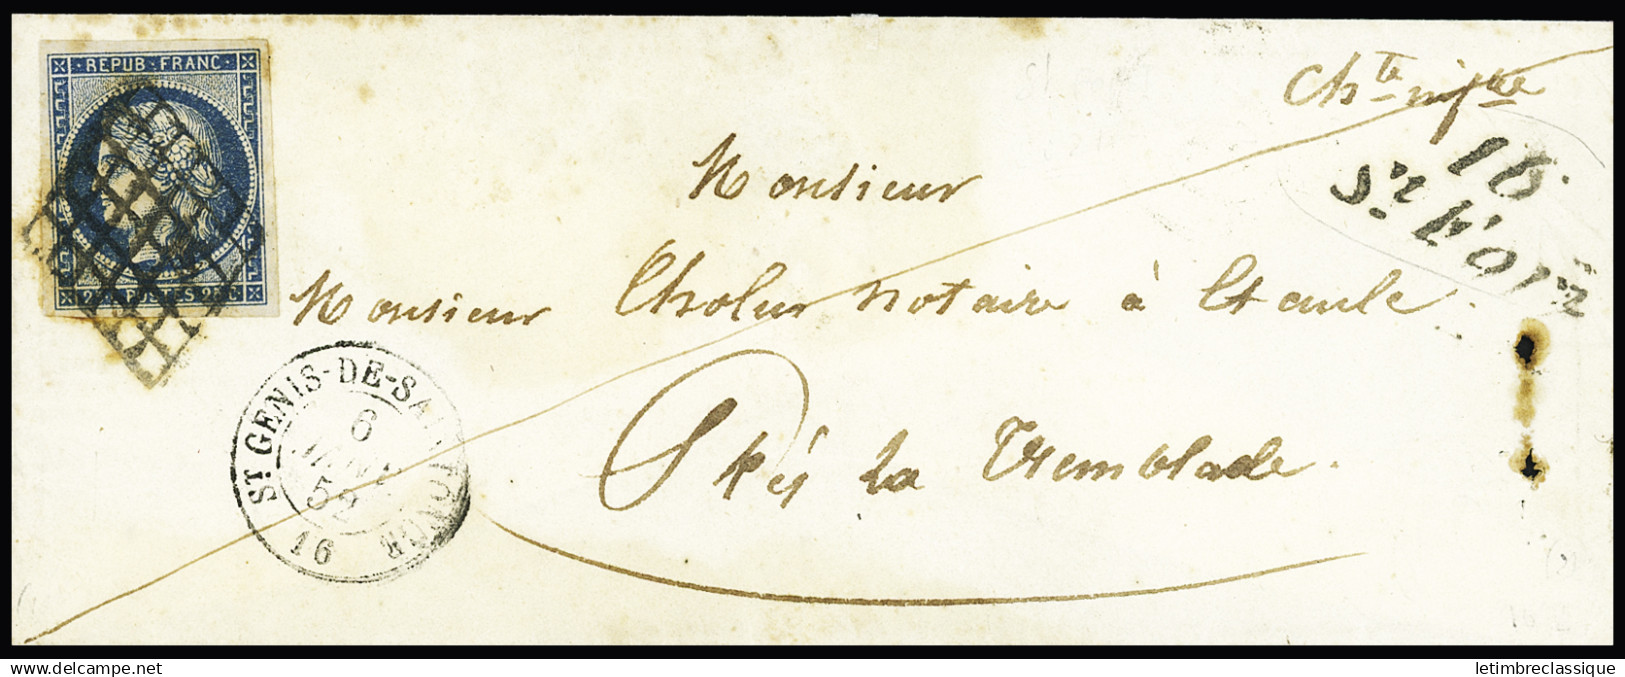 REPUB·FRANC·
POSTES
Ch.te inf.re
16
St Fort
Monsieur
Monsieur notaire à Etaule.
Près la Tremblade.
ST. GENIS-DE-SAINTONGE
6
JANV.
52
16
delcampe.net
letimbreclassique